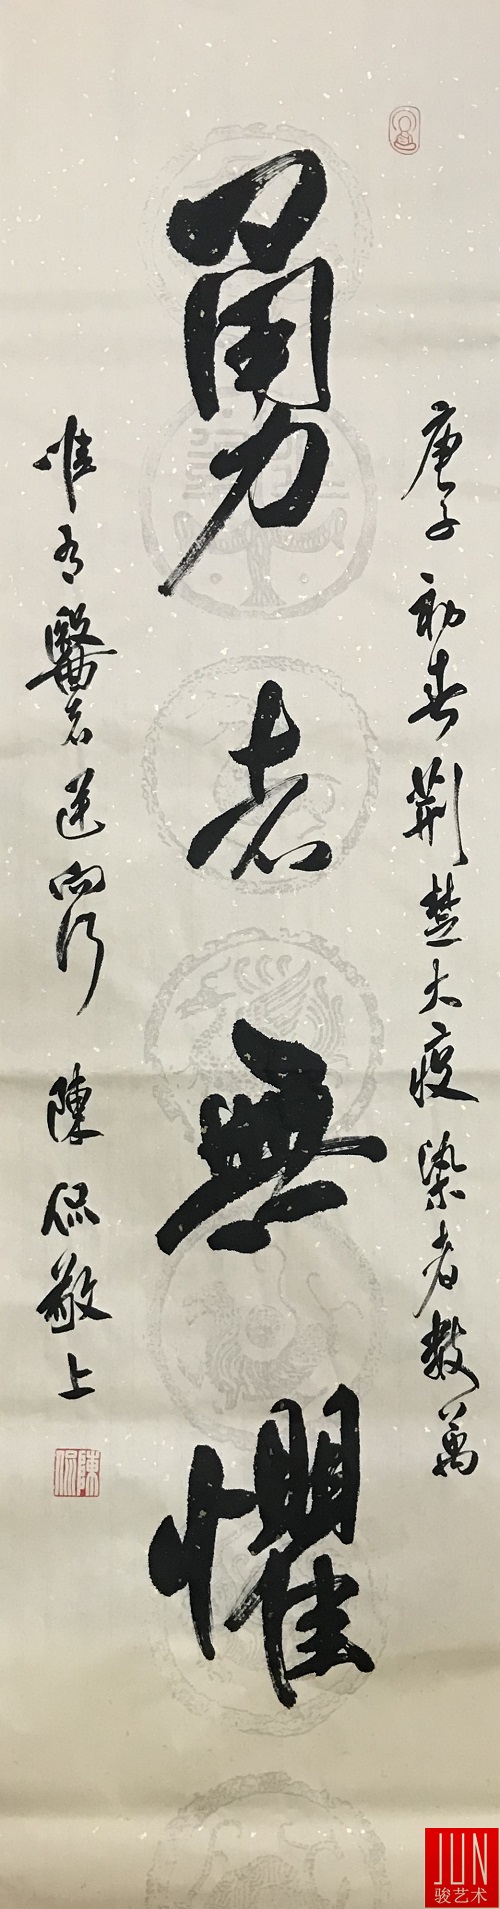 庚子初春荆楚大疫染者数萬
勇者無懼
惟有醫者逆向行
陳侃敬上
陳侃
JUN
骏艺术